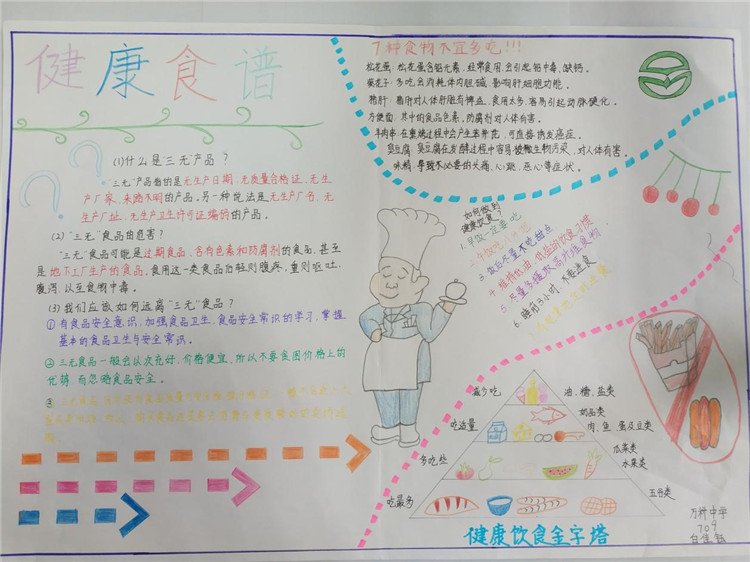 健康食谱
(1)什么是三无产品?
"三无"产品指的是无生产日期,无质量合格证,无生
产厂家,来路不明的产品。另一种说法是无生产厂名,无
生产厂址,无生产卫生许可证编码的产品。
(2)"三无"食品的危害?
"三无"食品可能是过期食品,含有色素和防腐剂的食品,甚至
是地下工厂生产的食品,食用这一类食品由轻则腹疼,重则呕吐
腹泻以至食物中毒。
(3)我们应该如何远离"三无"食品?
①有食品安全意识,加强食品卫生,食品安全常识的学习,掌握
基本的食品卫生与安全常识。
②三无食品一般会以次充好,价格便宜,所以不要贪图价格上的
优销而忽略食品安全。
③
7种食物不宜多吃!!!
松花蛋:松花蛋含铅元素,经常食用会引起铅中毒,缺钙。
葵花子:多吃会消耗体内胆碱,影响肝细胞功能。
猪肝:猪肝对人体肝胆有裨益,食用太多,容易引起动脉硬化。
方便面:其中的食品色素,防腐剂对人体有害。
羊肉串:在熏烧过程中会产生苯并芘,可直接诱发癌症。
臭豆腐:臭豆腐在发酵过程中容易被微生物污染,对人体有害。
味精:导致不必要的头痛,心跳,恶心等症状。
如何做到
健康饮食?
1.早饭一定要吃
3.饭后尽量不吃甜点
4.维持低油,低盐的饮食习惯
5.尽量多摄取高纤维食物
6.睡前3小时,不要进食
减少吃
油、糖、盐类
吃适量
奶品类
肉、鱼、蛋及豆类
多吃些
瓜菜类
水果类
吃最多
五谷类
健康饮食金字塔
万科中学
709